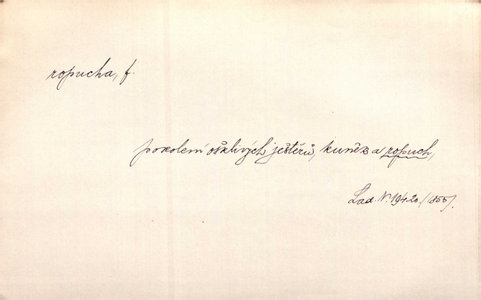 ropucha, f.
pokolení ošklivých ještěrů, kuněk a ropuch,
Lad. N. 1942. /855/.